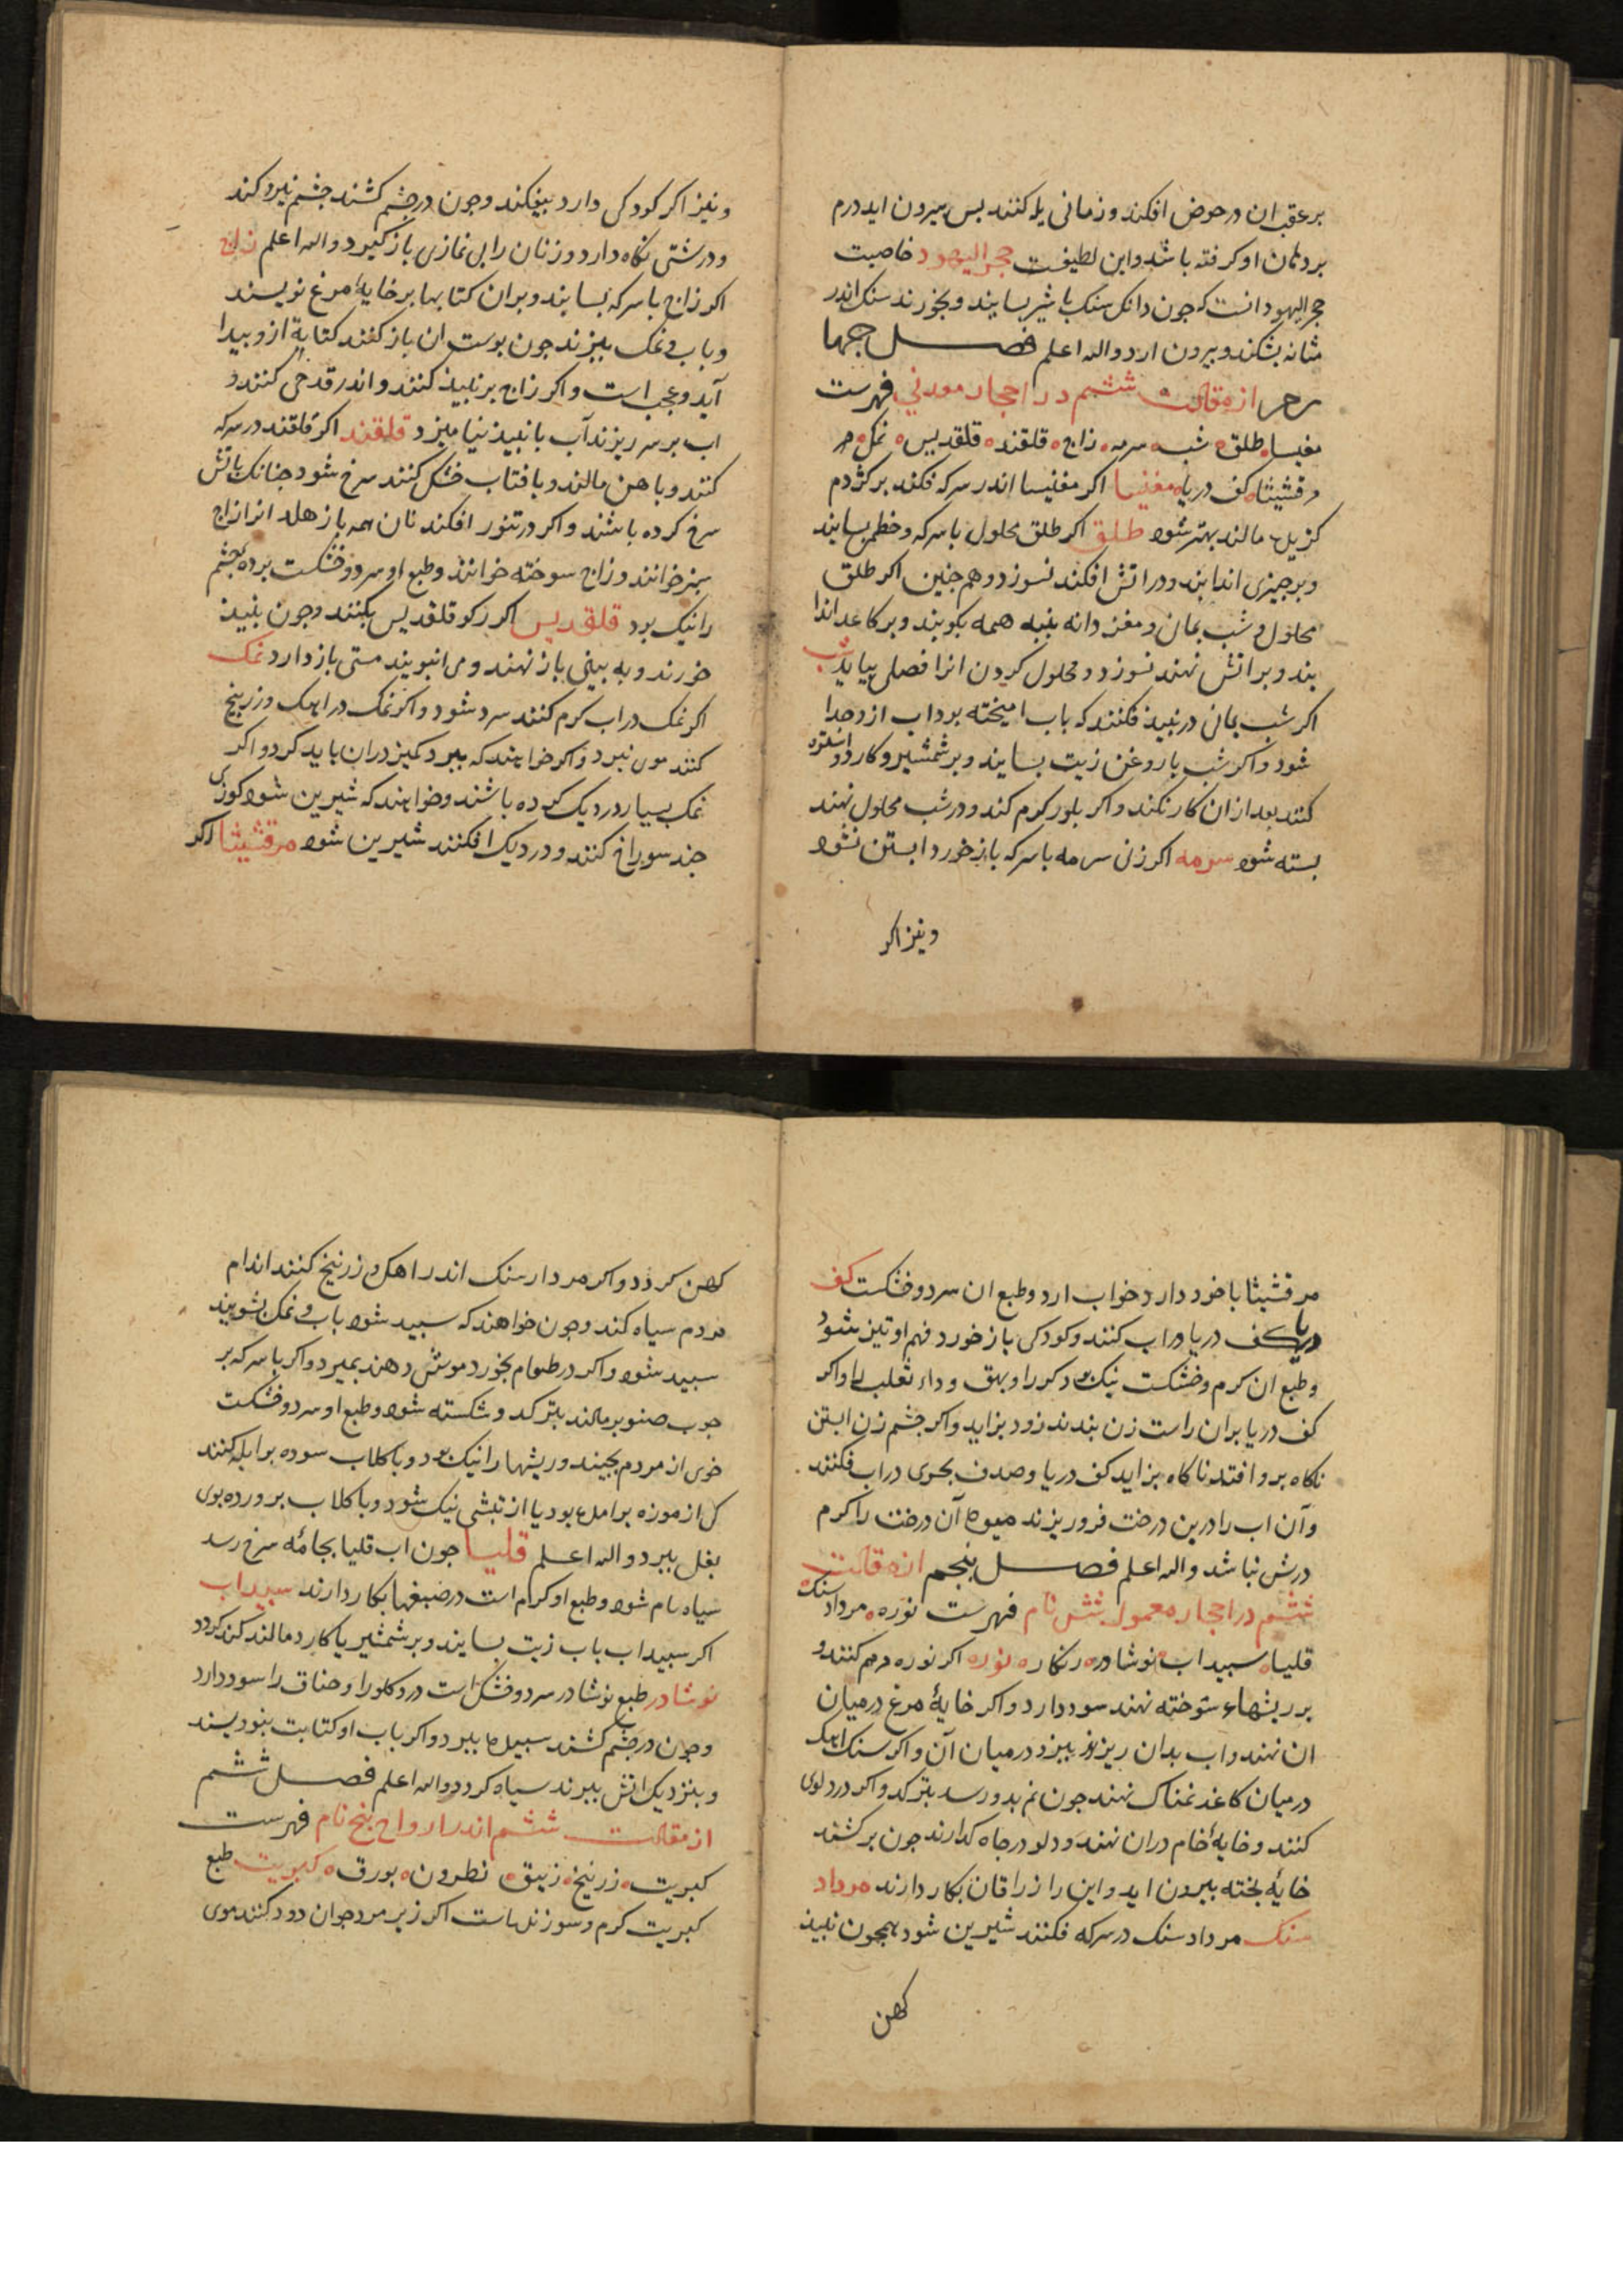 بر عقب ان در حوض افکند و زمانی یله کنند بس بیرون اید درم
بر دهان او کرفته باشد و این لطیفست حجر الیهود خاصیت
حجر الیهود انست که جون دانک سنک با شیر بسایند و بخورند سنک اندر
مثانه بشکند و بیرون ارد والله اعلم فصل جهارم
از مقالت ششم در احجار معدنی فهرست
مغنیسا طلق شب سرمه زاج قلقند قلقدیس نمک
مرقشیثا کف دریا مغنیسا اکر مغنیسا اندر سرکه فکند بر کژدم
کزیده مالند بهتر شود طلق اکر طلق محلول با سرکه و خطمی بسایند
و بر جیزی اندایند و در اتش افکند نسوزد و هم جنین اکر طلق
محلول و شب یمان و مغز دانه بنبه همه بکوبند و بر کاغد اندا
یند و بر اتش نهند نسوزد و محلول کردن انرا فصلی بیاید شب
اکر شب یمانی در نبید فکنند که باب امیخته بود اب ازو جدا
شود و اکر شب با روغن زیت بسایند و بر شمشیر و کارد و استره
کنند بعد از ان کار نکند و اکر بلور کرم کند و در شب محلول نهند
بسته شود سرمه اکر زن سرمه با سرکه باز خورد ابستن نشود
و نیز اکر
و نیز اکر کودکی دارد بیفکند و جون در جشم کشند جشم نیرو کند
و درشتی نکاه دارد و زنان را بی نمازی باز کیرد والله اعلم زاج
اکر زاج با سرکه بسایند و بدان کتابها بر خایهٔ مرغ نویسند
و باب و نمک ببزند جون بوست ان باز کنند کتابة ازو بیدا
آید و عجب است و اکر زاج بر نبید کنند و اندر قدحی کنند و
اب بر سر ریزند آب با نبید نیامیزد قلقند اکر قلقند در سرکه
کنند و با هن مالند و بافتاب خشک کنند سرخ شود جنانک باتش
سرخ کرده باشند و اکر در تنور افکند نان همه باز هلد انرا زاج
سبز خوانند و زاج سوخته خوانند و طبع او سرد و خشکست برده جشم
را نیک بود قلقدیس اکر رکو قلقدیس بکنند و جون نبید
خورند و به بینی باز نهند و می انبویند مستی باز دارد نمک
اکر نمک در اب کرم کنند سرد شود و اکر نمک در اهک و زرنیخ
کنند موی نبرد و اکر خواهند که ببرد کمیز در ان باید کرد و اکر
نمک بسیار در دیک کرده باشند و خواهند که شیرین شود کوزی
جند سوراخ کنند و در دیک افکنند شیرین شود مرقشیثا اکر
مرقشیثا با خود دارد خواب ارد و طبع ان سرد و خشکست کف
دریا کف دریا در اب کنند و کودکی باز خورد فهم او تیز شود
و طبع ان کرم و خشکست نیک بود کر را و بهق و داء ثعلب را و اکر
کف دریا بران راست زن بندند زود بزاید و اکر جشم زن ابستن
نکاه برو افتد ناکاه بزاید کف دریا و صدف بحری در اب فکنند
و آن اب را در بن درخت فرو ریزند میوه آن درخت را کرم
درش نباشد والله اعلم فصل بنجم از مقالت
ششم در احجار معمول شش نام فهرست نوره مرداسنک
قلیا سبیداب نوشادر زنکار نوره اکر نوره مرهم کنند و
بر ریشهاء سوخته نهند سود دارد و اکر خایهٔ مرغ در میان
ان نهند و اب بدان ریزند ببزد در میان آن و اکر سنک اهک
در میان کاغد نمناک نهند جون نم بدو رسد بترکد و اکر در دلوی
کنند و خایهٔ خام در ان نهند و دلو در جاه کذارند جون بر کشند
خایهٔ بخته بیرون اید و این را زراقان بکار دارند مرداد
سنک مرداد سنک در سرکه فکنند شیرین شود همجون نبید
کهن
کهن کردد و اکر مردار سنک اندر اهک و زرنیخ کنند اندام
مردم سیاه کند و جون خواهند که سبید شود باب و نمک بشویند
سبید شود و اکر در طعام بخورد موش دهند بمیرد و اکر با سرکه بر
جوب صنوبر مالند بترکد و شکسته شود و طبع او سرد و خشکست
خوی از مردم بجیند و ریشها را نیک بود و با کلاب سوده بر ابله کنند
کی از موزه بر امده بود یا از تبشی نیک شود و با کلاب برورده بوی
بغل ببرد والله اعلم قلیا جون اب قلیا بجامهٔ سرخ رسد
سیاه بام شود و طبع او کرم است در صبغها بکار دارند سبیداب
اکر سبیداب باب زیت بسایند و بر شمشیر یا کارد مالند کند کردد
نوشادر طبع نوشادر سرد و خشک است درد کلو را و خناق را سود دارد
و جون در جشم کشند سبیدی ببرد و اکر باب او کتابت بنویسند
و بنزدیک اتش ببرند سیاه کردد والله اعلم فصل ششم
از مقالت ششم اندر ارواح بنج نام فهرست
کبریت زرنیخ زیبق نطرون بورق کبریت طبع
کبریت کرم و سوزنده است اکر زیر مرد جوان دود کنند موی